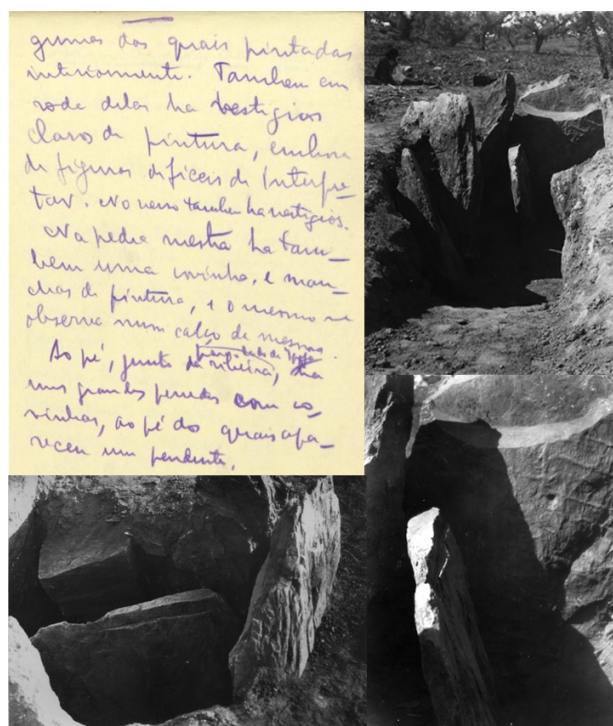 gumas das quais pintadas
interiormente. Tambem em
roda delas ha vestigios
claros de pintura, embora
de figuras dificeis de Interpre-
tar. No verso tambem ha vestigios.
Na pedra mestra ha tam-
bem uma covinha, e man-
chas de pintura, e o mesmo se
observa num calço da mesma.
Ao pé, junto da ribeira, ha
uns grandes penedos com co-
vinhas, ao pé do quais apa-
receu um pendente.